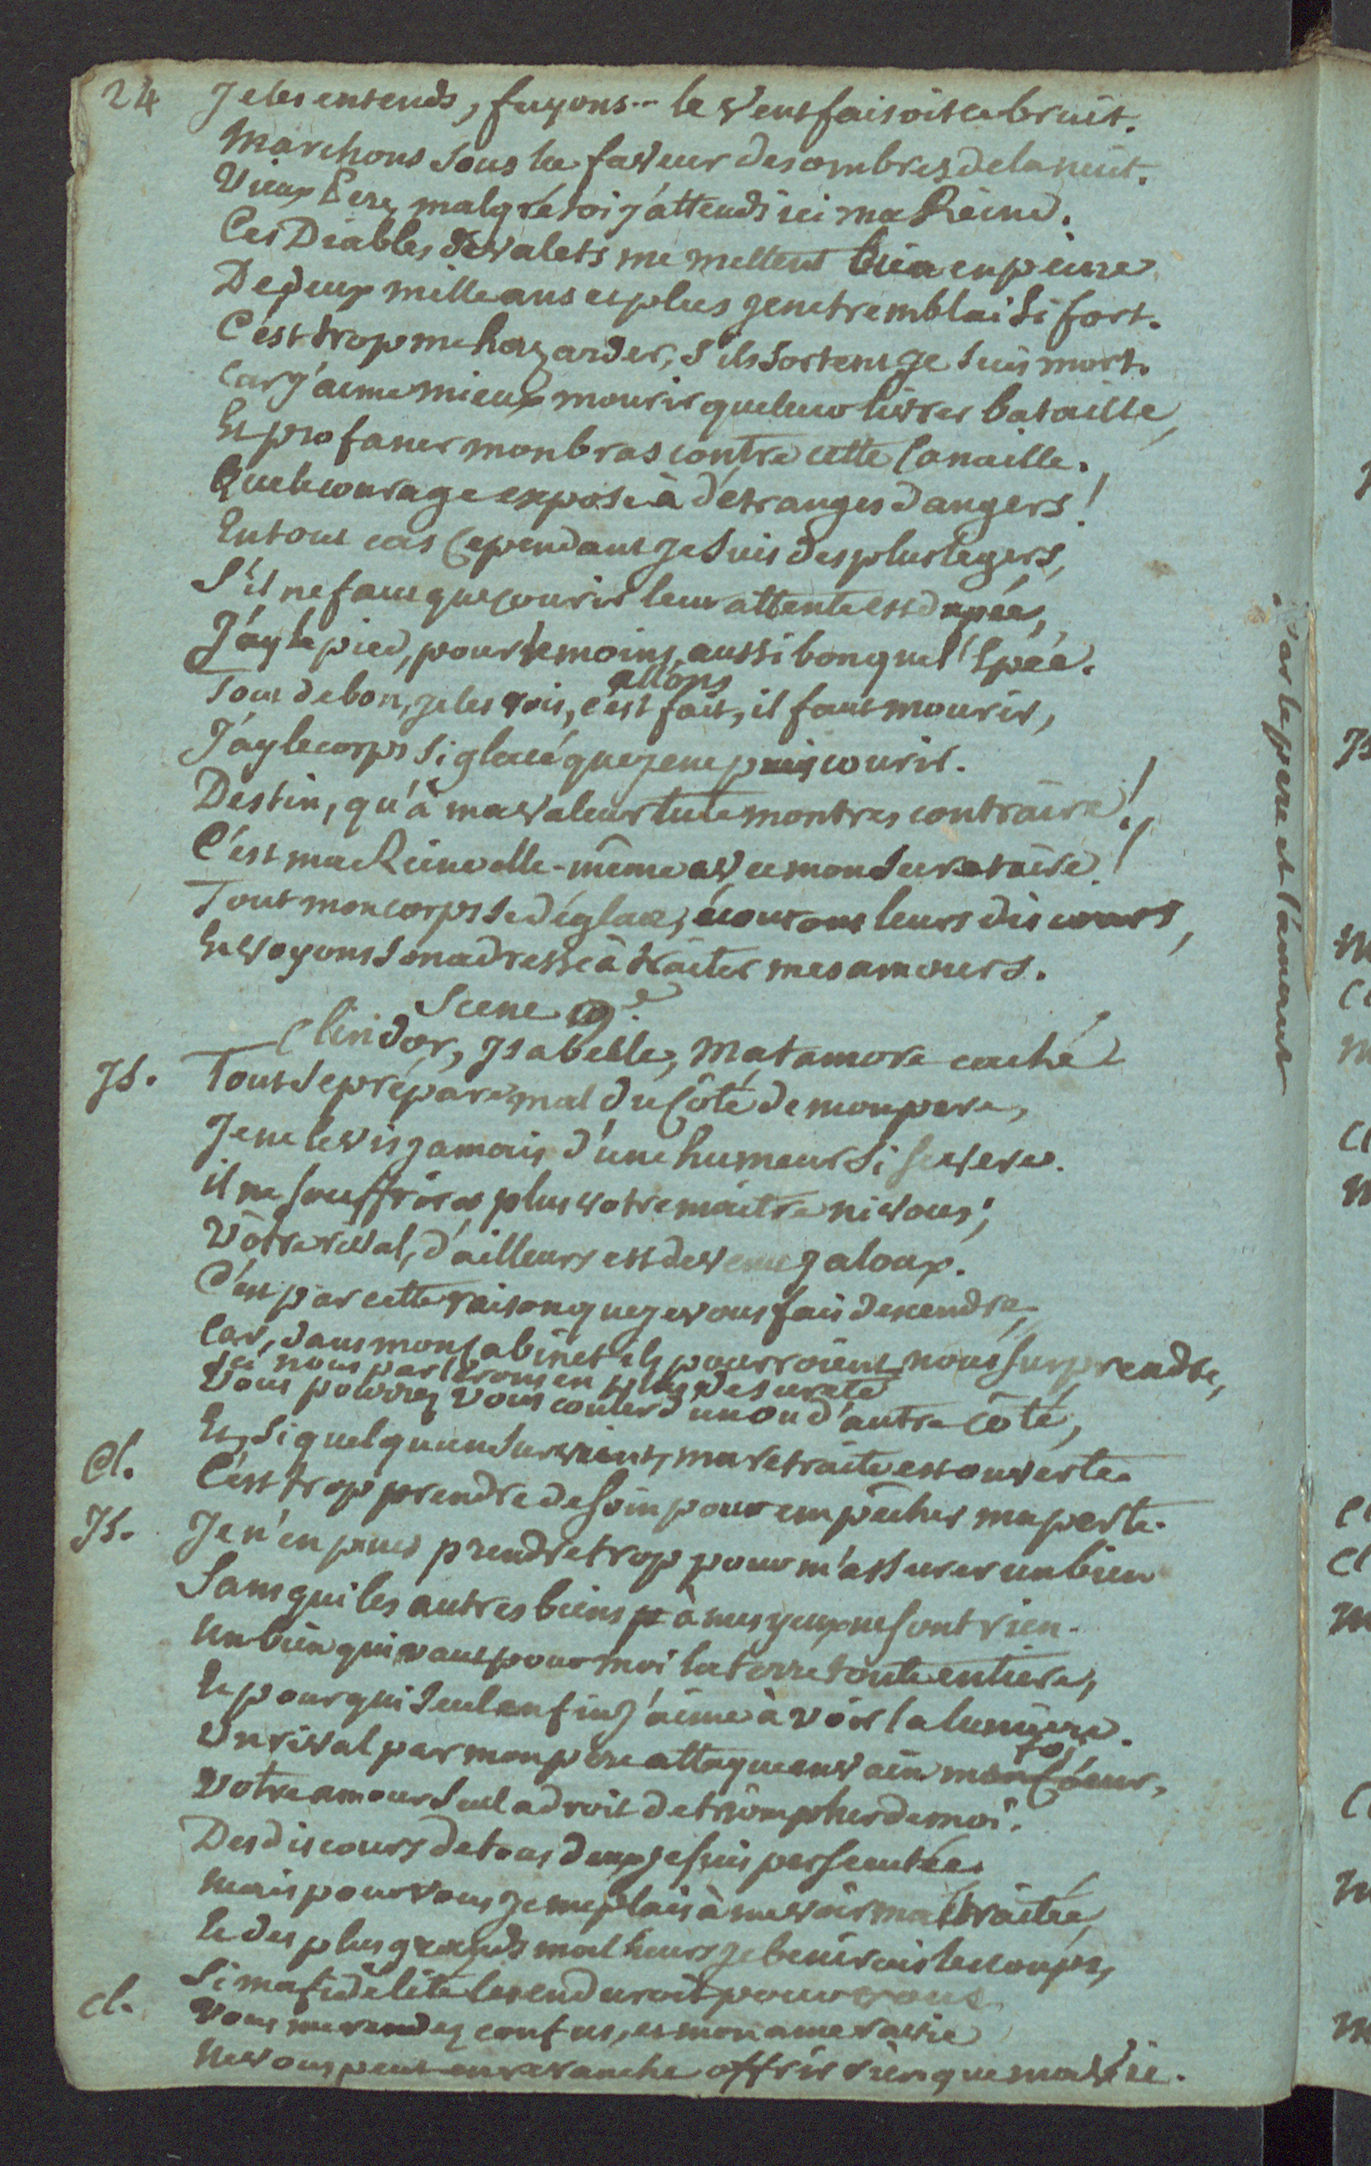 24
Je les entends, fuyons... le Vent faisoit ce bruit.
Marchons sous la faveur des ombres de la nuit.
Vieux Pere, malgré toi j'attends ici ma Reine.
Ces Diables de valets me mettent bien en peine
De deux mille ans et plus je ne tremblai si fort.
C'est trop me hazarder, s'ils sortent je suis mort.
Car j'aime mieux mourir que leur livrer bataille,
Et profaner mon bras contre cette Canaille.
Que le courage expose à d'étranges dangers!
En tout cas Cependant je suis des plus legers,
S'il ne faut que courir leur attente est dupée,
J'ay le pied, pour le moins, aussi bon que l'Epée.
allons
Tout de bon, je les vois, c'est fait, il faut mourir,
J'ay le corps si glacé que je ne puis courir.
Destin, qu'à ma valeur tu te montres contraire!
C'est ma Reine elle-même avec mon Secretaire!
Tout mon corps se déglace, écoutons leurs discours,
Et voyons son adresse à traiter mes amours.
Scene 9e.
Clindor, Isabelle, Matamore caché
Is. Tout se prépare mal du Côté de mon pere,
Je ne le vis jamais d'une humeur si severe.
il ne souffrira plus votre maitre ni vous;
Vôtre rival, d'ailleurs est devenu jaloux.
C'est par cette raison que je vous fais descendre,
Car, dans mon Cabinet ils pourroient nous surprendre,
Ici nous parlerons en plus de sureté
Vous pouvez vous couler d'un ou d'autre côté,
Et si quelqu'un survient, ma retraite est ouverte.
Cl. C'est trop prendre de soin pour empêcher ma perte.
Is. Je n'en puis prendre trop pour m'assurer un bien
Sans qui les autres biens à mes yeux ne sont rien.
Un bien qui vaut pour moi la terre toute entiere,
Et pour qui seul enfin j'aime à voir la lumiere.
foi
Un rival par mon pere attaque en vain mon Coeur,
Votre amour seul a droit de triompher de moi.
Des discours de tous deux je suis persecutée
Mais pour vous je me plais à me voir maltraitée,
Et des plus grands malheurs je benirois les coups,
Si ma fidelité les enduroit pour vous
cl. Vous me rendez confus, et mon ame ravie
Ne vous peut en revanche offrir rien que ma vie.
par le pere et l'amant